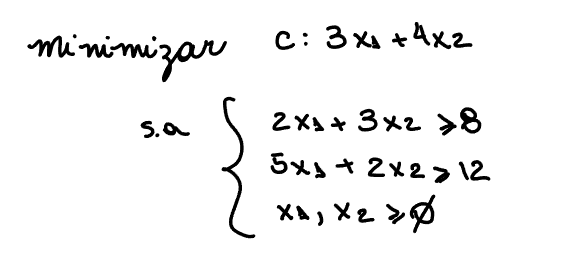 minimizar C: 3x1 + 4x2
s.a
2x1 + 3x2 ≥ 8
5x1 + 2x2 ≥ 12
x1, x2 ≥ 0